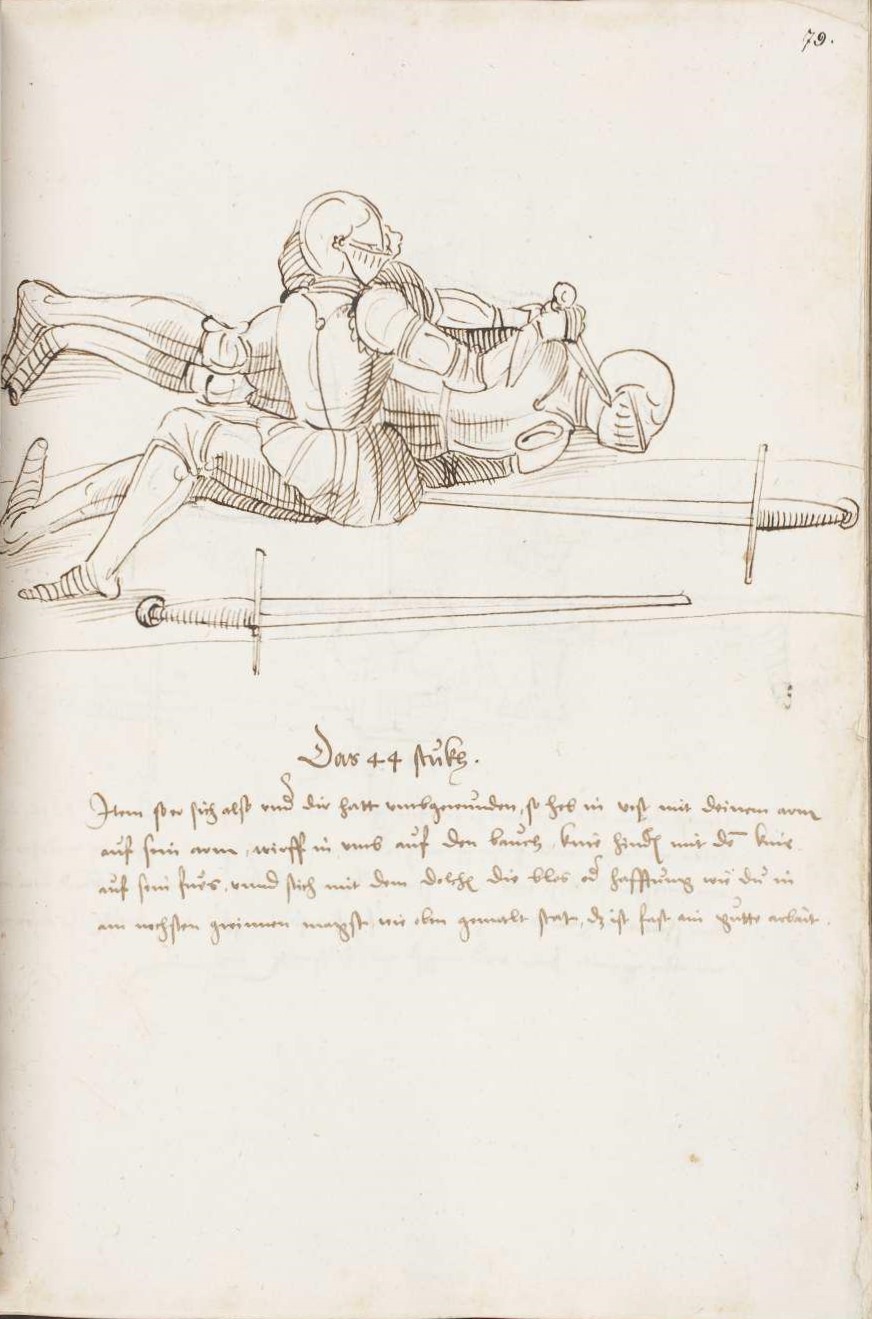 79.
Das 44 stukh.
Item so er sich also vnder dir hatt vmbgewunden, so heb in vest mit deinem arm
auf sein arm, wirff in vmb auf den bauch, knie hinden mit dem knie
auf sein fues, vnnd stich mit dem dolchen die blos oder hafftung wie du in
am nechsten gwinnen magst, wie oben gemalt stat, dz ist fast ain gutte arbait.